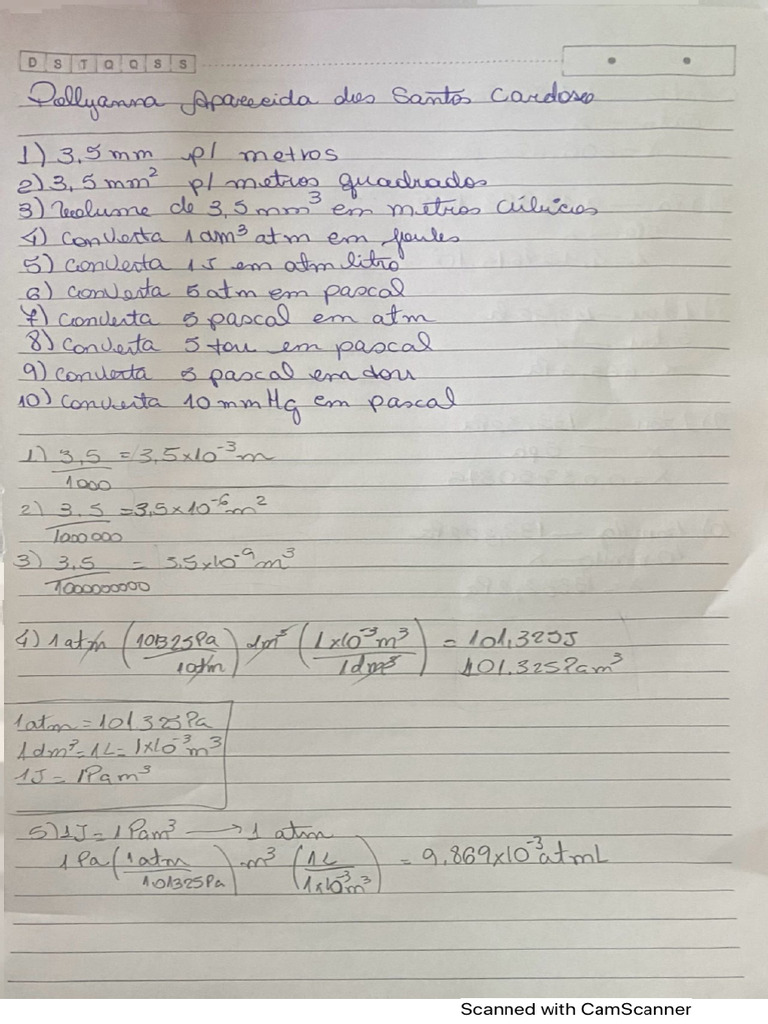 D S T Q Q S S
Pollyanna Aparecida dos Santos Cardoso
1) 3,5 mm p/ metros
2) 3,5 mm² p/ metros quadrados
3) Volume de 3,5 mm³ em metros cúbicos
4) Converta 1 dm³ atm em joules
5) Converta 1J em atm litro
6) Converta 5 atm em pascal
7) Converta 5 pascal em atm
8) Converta 5 torr em pascal
9) Converta 5 pascal em torr
10) Converta 10 mmHg em pascal
1) 3,5/1000 = 3,5x10⁻³ m
2) 3,5/1000000 = 3,5x10⁻⁶ m²
3) 3,5/1000000000 = 3.5x10⁻⁹ m³
4) 1 atm (101325Pa/1atm) 1dm³ (1x10⁻³m³/1dm³) = 101,325J
101.325Pam³
1atm = 101325Pa
1dm³ = 1L = 1x10⁻³ m³
1J = 1Pam³
5) 1J = 1Pam³ → 1 atm
1 Pa (1atm/101325Pa) · m³ (1L/1x10⁻³m³) = 9,869x10⁻³ atmL
Scanned with CamScanner